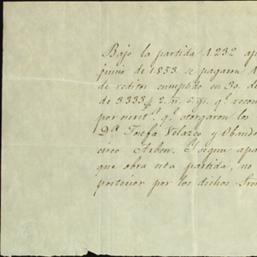 Bajo la partida 1232 ap
junio de 1833 se pagaron
de reditos cumplidos en 30 de
de 3333 p. 2 r. q.e recon
por escrit.a q.e otorgaron los
D.a Josefa Velazco y Obando
segun apa
que obra esta partida, no
posterior por los dichos Sre